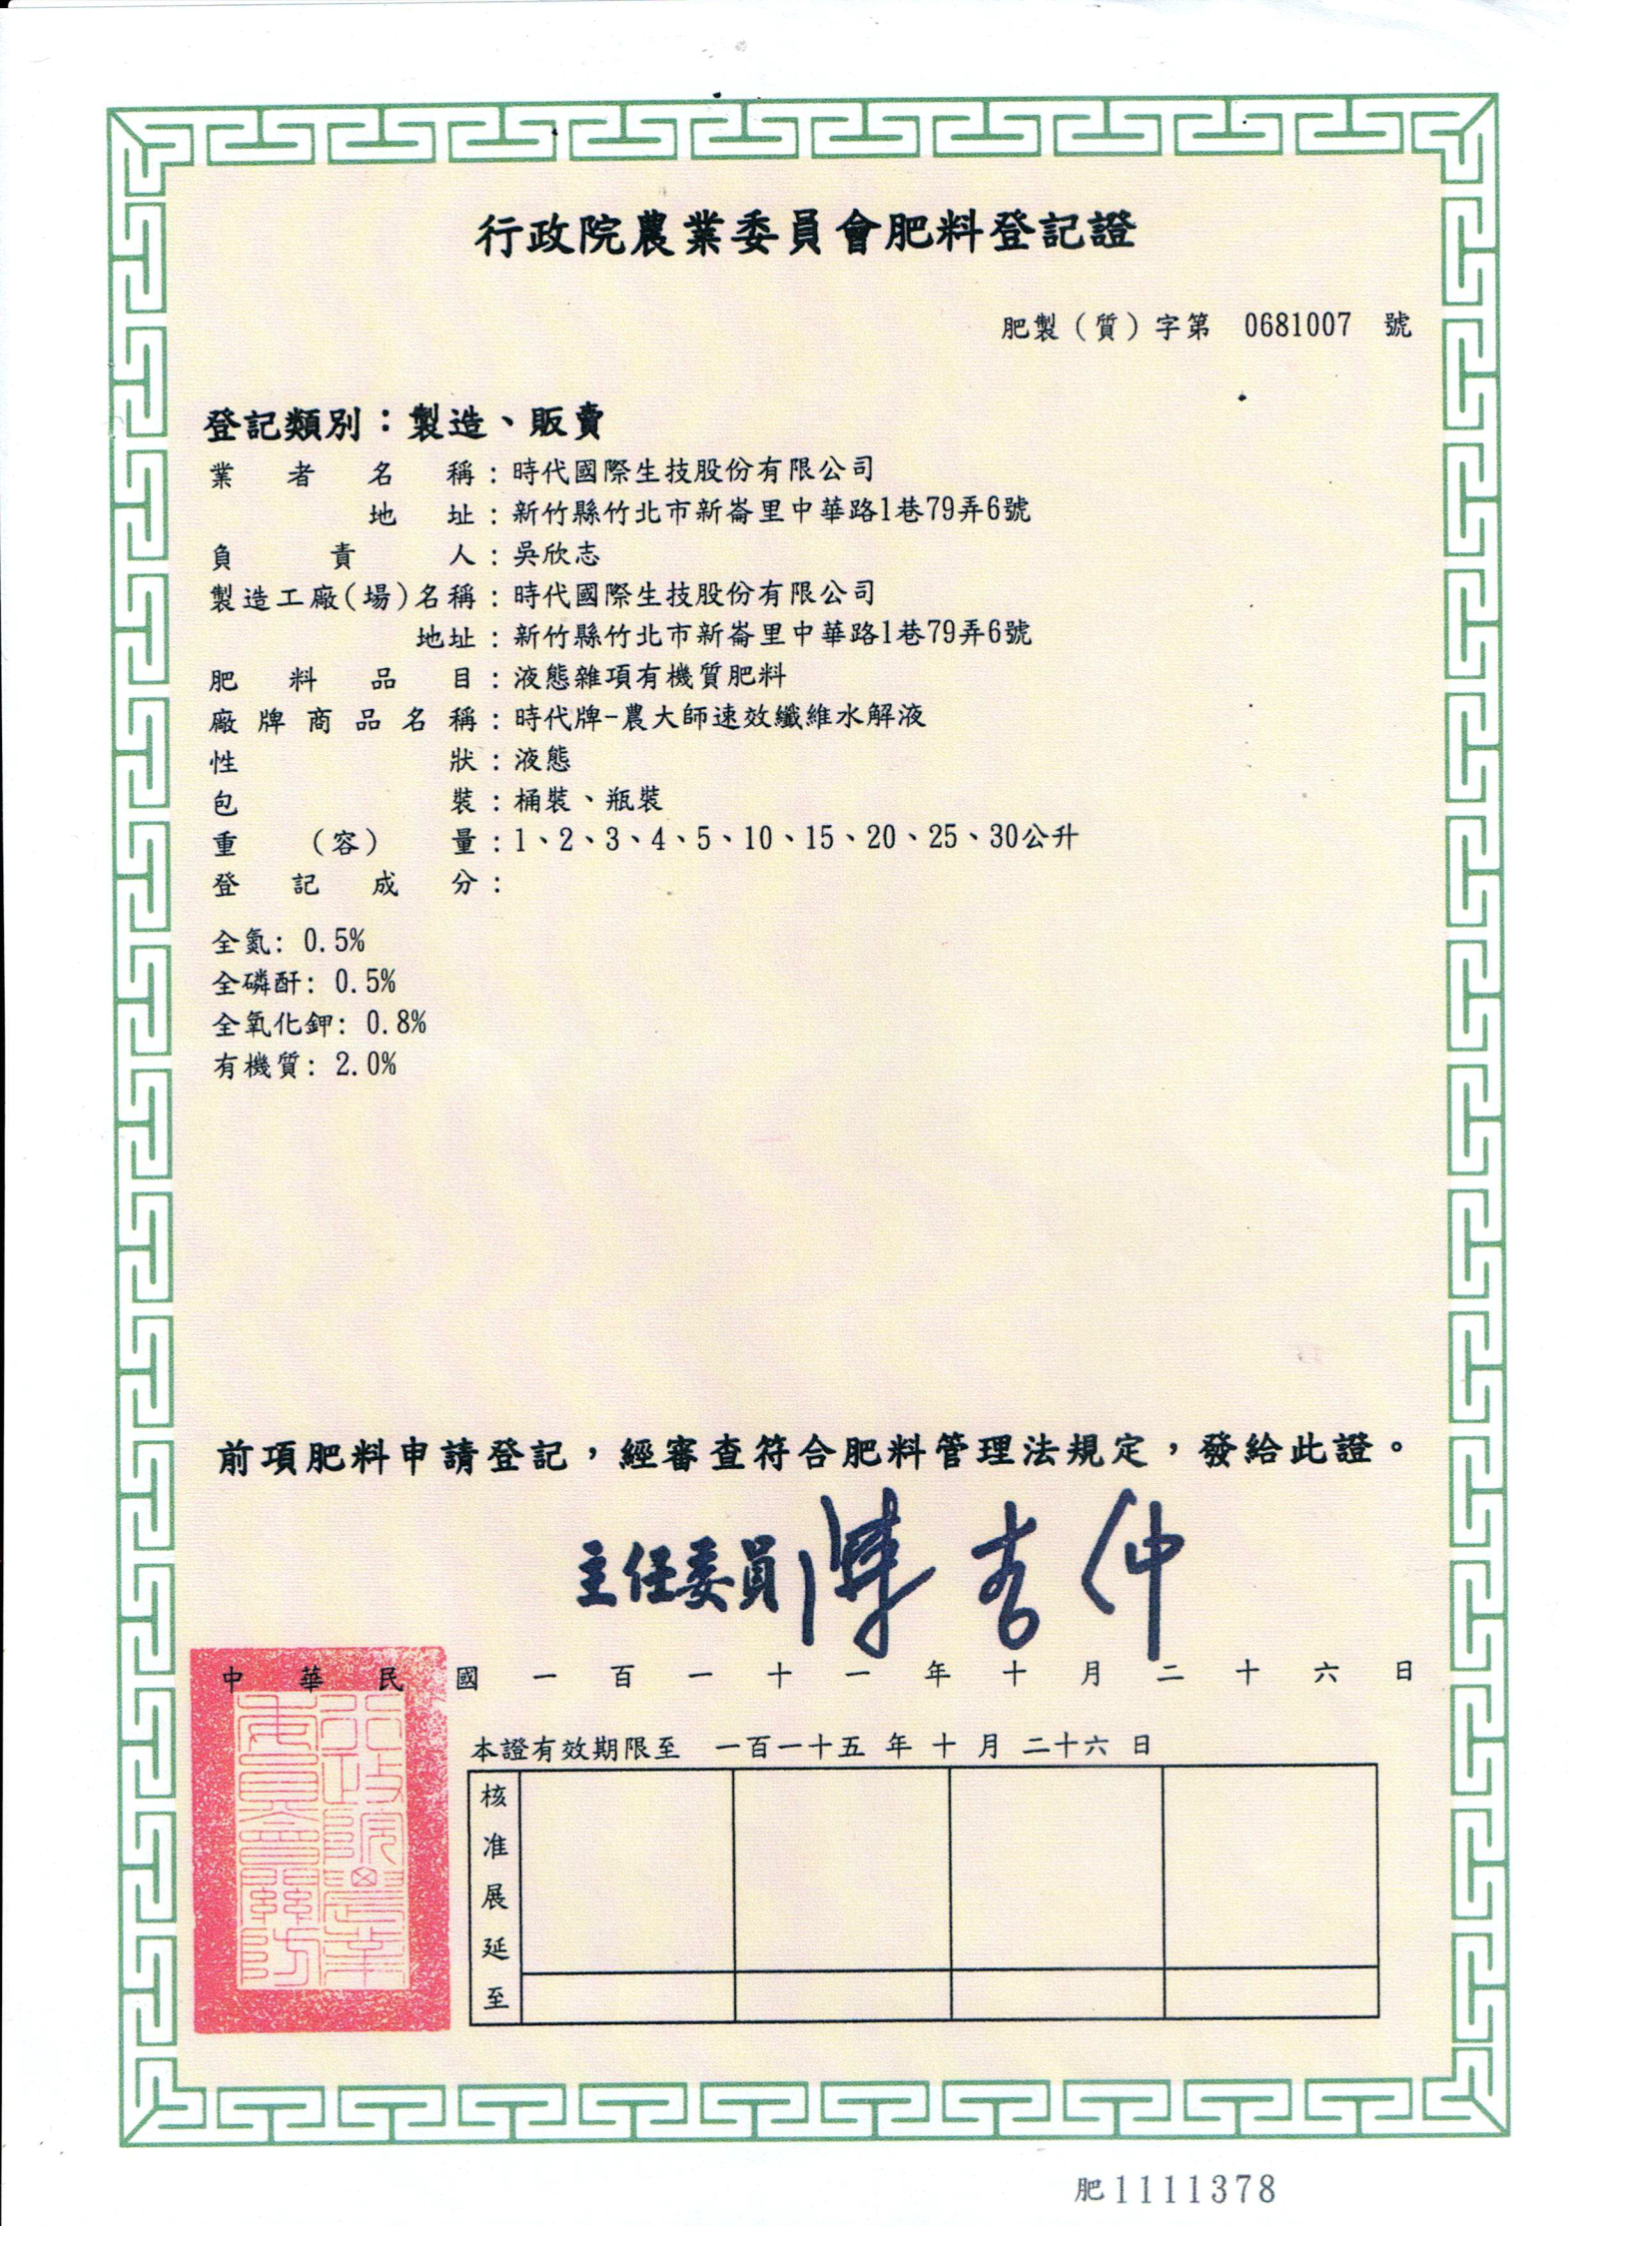 行政院農業委員會肥料登記證
肥製（質）字第 0681007 號
登記類別：製造、販賣
業者名稱：時代國際生技股份有限公司
地址：新竹縣竹北市新崙里中華路1巷79弄6號
負責人：吳欣志
製造工廠(場)名稱：時代國際生技股份有限公司
地址：新竹縣竹北市新崙里中華路1巷79弄6號
肥料品目：液態雜項有機質肥料
廠牌商品名稱：時代牌-農大師速效纖維水解液
性狀：液態
包裝：桶裝、瓶裝
重（容）量：1、2、3、4、5、10、15、20、25、30公升
登記成分：
全氮: 0.5%
全磷酐: 0.5%
全氧化鉀: 0.8%
有機質: 2.0%
前項肥料申請登記，經審查符合肥料管理法規定，發給此證。
主任委員 陳吉仲
中華民國一百一十一年十月二十六日
行政院農業委員會關防
本證有效期限至 一百一十五 年 十 月 二十六 日
核准展延至
肥1111378